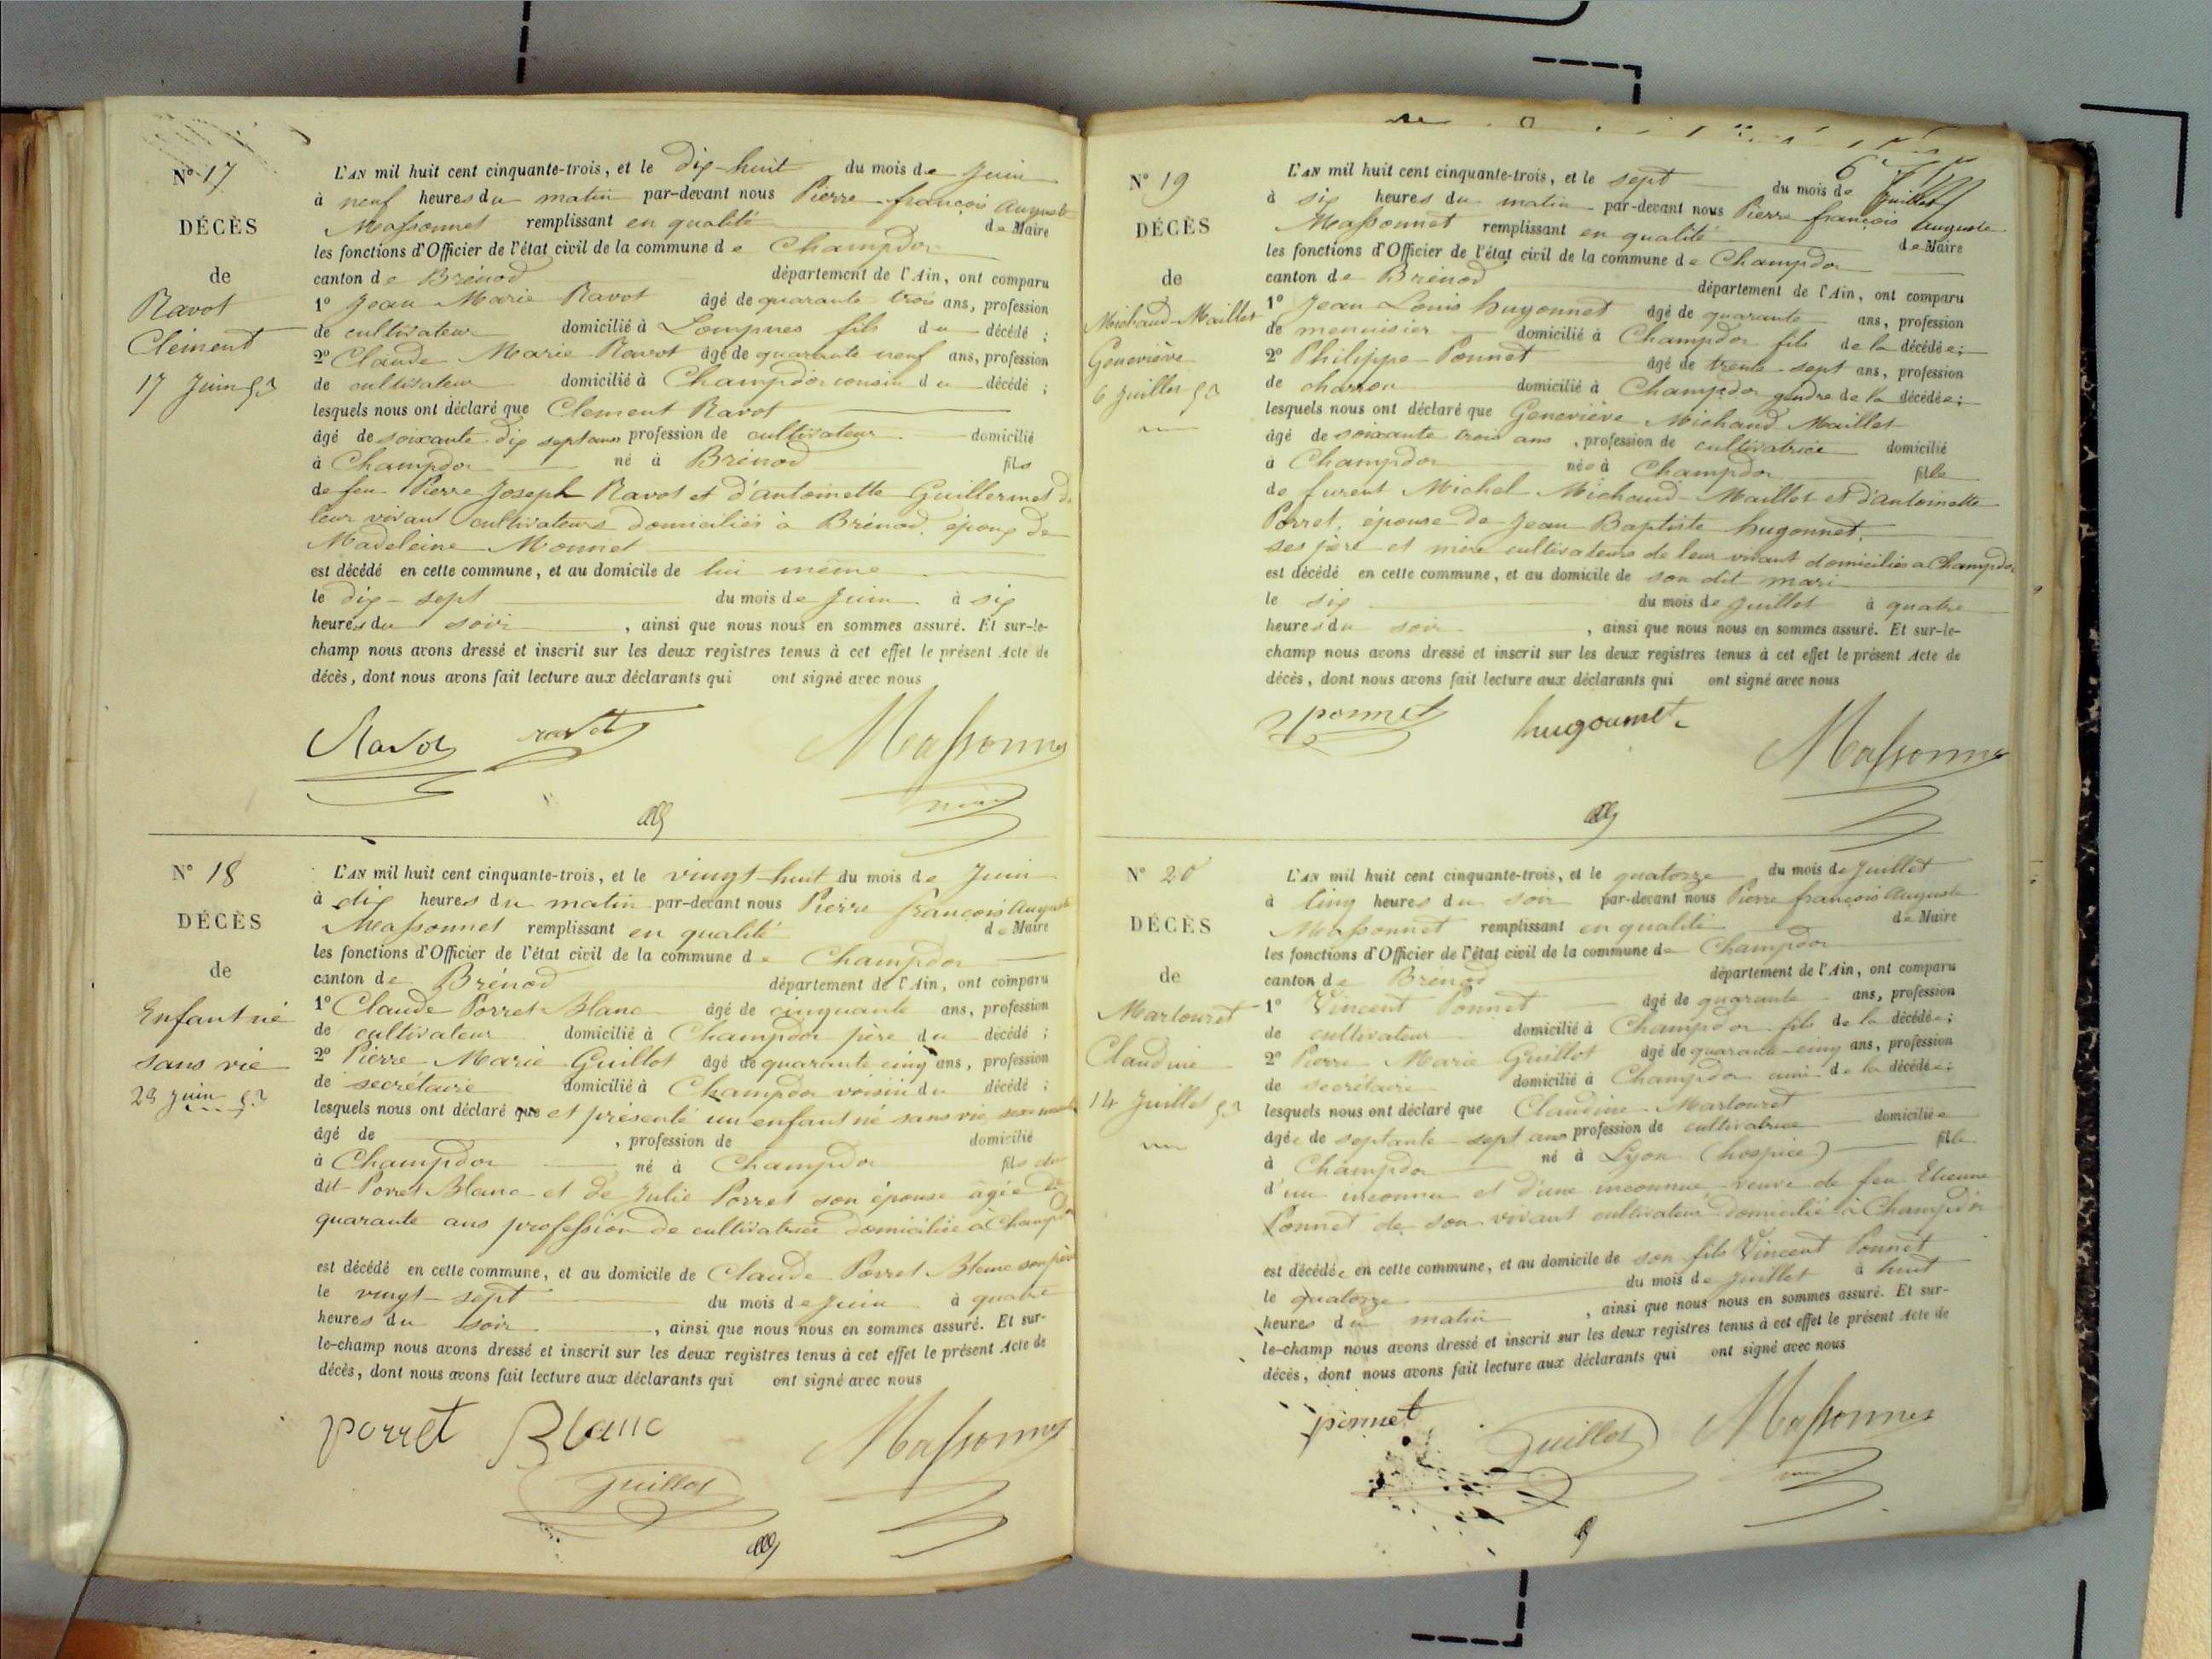 N° 17
DÉCÈS
de
Ravot
Clément
17 Juin 53
L'AN mil huit cent cinquante-trois, et le dix-huit du mois de Juin
à neuf heures du matin par-devant nous Pierre françois Auguste
Massonnet remplissant en qualité de Maire
les fonctions d'Officier de l'état civil de la commune de Champdor
canton de Brénod département de l'Ain, ont comparu
1° Jean Marie Ravot âgé de quarante trois ans, profession
de cultivateur domicilié à Lompnes fils du décédé ;
2° Claude Marie Ravot âgé de quarante neuf ans, profession
de cultivateur domicilié à Champdor cousin du décédé ;
lesquels nous ont déclaré que Clement Ravot
âgé de soixante dix sept ans profession de cultivateur domicilié
à Champdor né à Brénod fils
de feu Pierre Joseph Ravot et d'antoinette Guillermet de
leur vivant cultivateurs domiciliés à Brénod, époux de
Madeleine Monnet
est décédé en cette commune, et au domicile de lui même
le dix-sept du mois de Juin à six
heures du soir , ainsi que nous nous en sommes assuré. Et sur-le-
champ nous avons dressé et inscrit sur les deux registres tenus à cet effet le présent Acte de
décès, dont nous avons fait lecture aux déclarants qui ont signé avec nous
Ravot ravot Massonnet
maire
N° 18
DÉCÈS
de
Enfant né
sans vie
28 juin 53
L'AN mil huit cent cinquante-trois, et le vingt-huit du mois de Juin
à dix heures du matin par-devant nous Pierre françois Auguste
Massonnet remplissant en qualité de Maire
les fonctions d'Officier de l'état civil de la commune de Champdor
canton de Brénod département de l'Ain, ont comparu
1° Claude Porret Blanc âgé de cinquante ans, profession
de cultivateur domicilié à Champdor père du décédé ;
2° Pierre Marie Guillot âgé de quarante cinq ans, profession
de secrétaire domicilié à Champdor voisin du décédé ;
lesquels nous ont déclaré que et présenté un enfant né sans vie
âgé de , profession de domicilié
à Champdor né à Champdor fils du
dit Porret Blanc et de Julie Porret son épouse âgée de
quarante ans profession de cultivatrice domiciliée à Champdor
est décédé en cette commune, et au domicile de Claude Porret Blanc son père
le vingt-sept du mois de Juin à quatre
heures du soir , ainsi que nous nous en sommes assuré. Et sur-
le-champ nous avons dressé et inscrit sur les deux registres tenus à cet effet le présent Acte de
décès, dont nous avons fait lecture aux déclarants qui ont signé avec nous
porret Blanc Massonnet
Guillot
N° 19
DÉCÈS
de
Michaud-Maillet
Geneviève
6 Juillet 53
L'AN mil huit cent cinquante-trois, et le sept du mois de Juillet
à six heures du matin par-devant nous Pierre françois Auguste
Massonnet remplissant en qualité de Maire
les fonctions d'Officier de l'état civil de la commune de Champdor
canton de Brénod département de l'Ain, ont comparu
1° Jean Louis hugonnet âgé de quarante ans, profession
de menuisier domicilié à Champdor fils de la décédée ;
2° Philippe Ponnet âgé de trente-sept ans, profession
de charron domicilié à Champdor gendre de la décédée ;
lesquels nous ont déclaré que Geneviève Michaud Maillet
âgé de soixante trois ans , profession de cultivatrice domicilié
à Champdor née à Champdor fille
de furent Michel Michaud-Maillet et d'antoinette
Porret, épouse de Jean Baptiste hugonnet,
ses père et mère cultivateurs de leur vivant domiciliés à Champdor
est décédé en cette commune, et au domicile de son dit mari
le six du mois de Juillet à quatre
heures du soir , ainsi que nous nous en sommes assuré. Et sur-le-
champ nous avons dressé et inscrit sur les deux registres tenus à cet effet le présent Acte de
décès, dont nous avons fait lecture aux déclarants qui ont signé avec nous
ponnet hugonnet Massonnet
N° 20
DÉCÈS
de
Martouret
Claudine
14 Juillet 53
L'AN mil huit cent cinquante-trois, et le quatorze du mois de Juillet
à cinq heures du soir par-devant nous Pierre françois Auguste
Massonnet remplissant en qualité de Maire
les fonctions d'Officier de l'état civil de la commune de Champdor
canton de Brénod département de l'Ain, ont comparu
1° Vincent Ponnet âgé de quarante ans, profession
de cultivateur domicilié à Champdor fils de la décédée ;
2° Pierre Marie Guillot âgé de quarante-cinq ans, profession
de secrétaire domicilié à Champdor ami de la décédée ;
lesquels nous ont déclaré que Claudine Martouret
âgée de septante sept ans profession de cultivatrice domiciliée
à Champdor né à Lyon (hospice) fille
d'un inconnu et d'une inconnue, veuve de feu Etienne
Ponnet de son vivant cultivateur domicilié à Champdor
est décédée en cette commune, et au domicile de son fils Vincent Ponnet
le quatorze du mois de Juillet à huit
heures du matin , ainsi que nous nous en sommes assuré. Et sur-
le-champ nous avons dressé et inscrit sur les deux registres tenus à cet effet le présent Acte de
décès, dont nous avons fait lecture aux déclarants qui ont signé avec nous
ponnet Guillot Massonnet